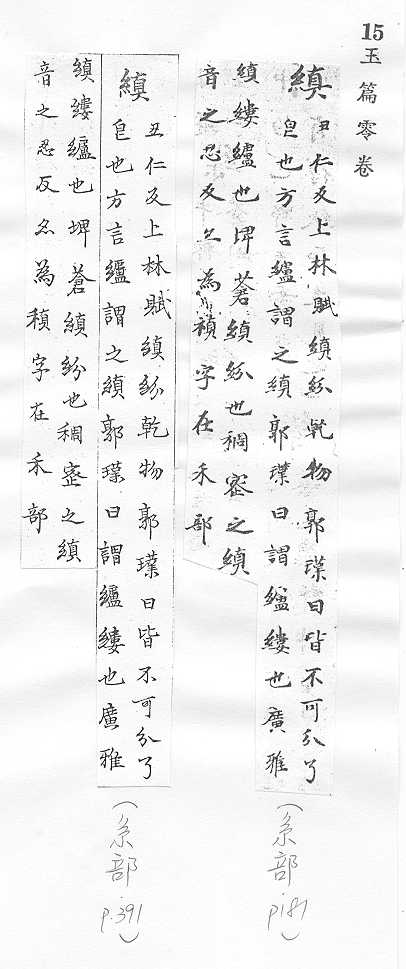 15玉篇零卷
縝丑仁反上林賦縝紛軋物郭璞曰皆不可分了
皃也方言纑謂之縝郭璞曰謂纑縷也廣雅
縝縷纑也埤蒼縝紛也稠密之縝
音之忍反亦為稹字在禾部
(糸部 p181)
縝丑仁反上林賦縝紛乾物郭璞曰皆不可分了
皀也方言纑謂之縝郭璞曰謂纑縷也廣雅
縝縷纑也埤蒼縝紛也稠密之縝
音之忍反亦為稹字在禾部
(糸部 p.391)